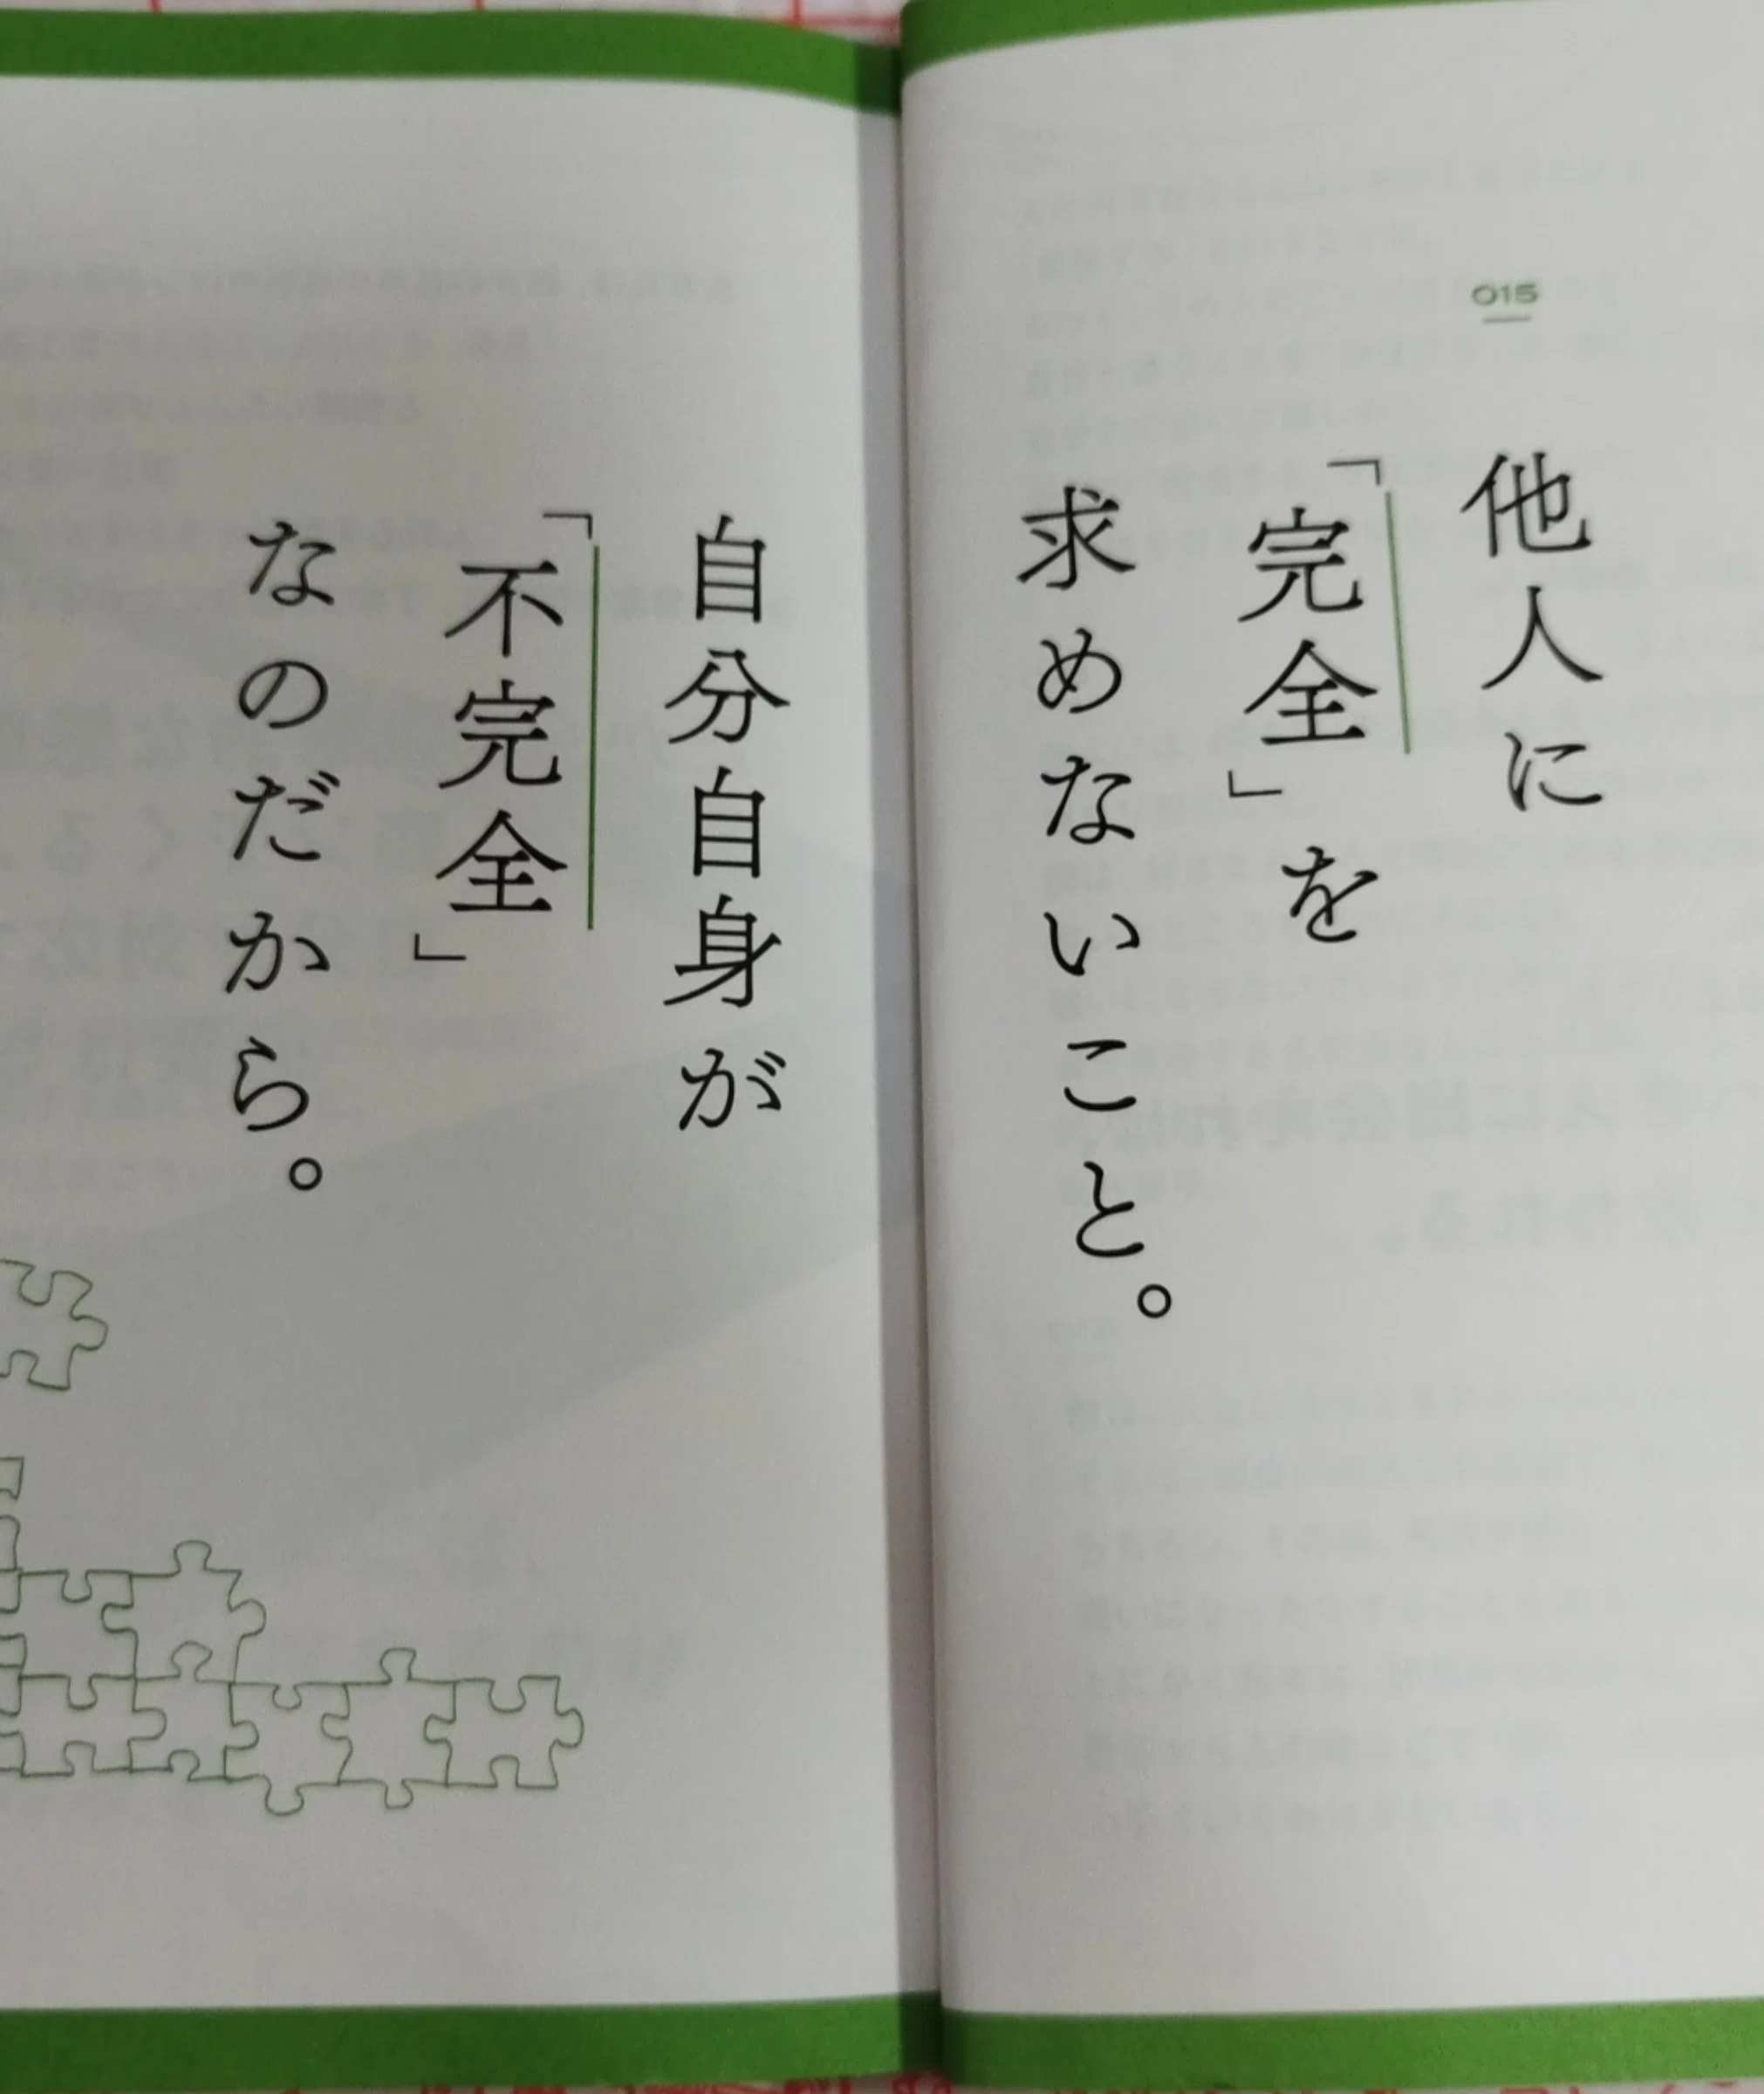 015
他人に
「完全」を
求めないこと。
自分自身が
「不完全」
なのだから。